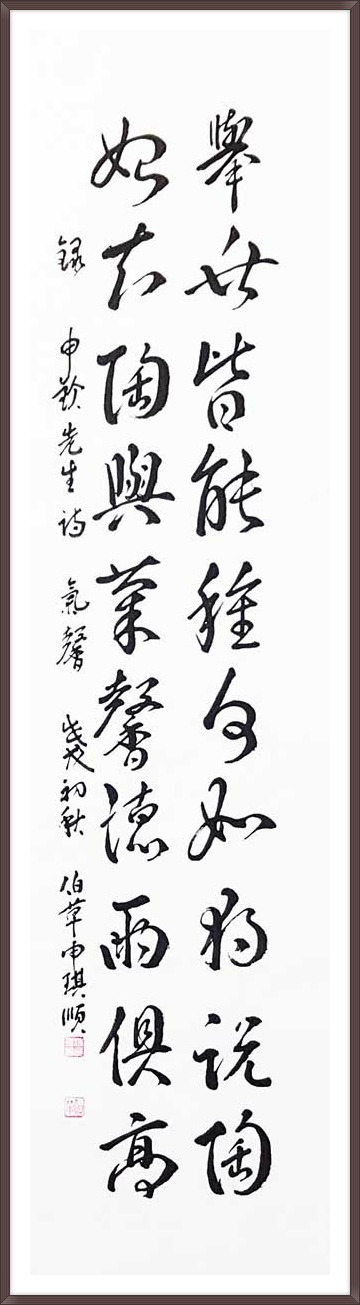 舉世皆能種何如獨說陶
始知陶與菊馨德兩俱高
録 申 先生詩 氣馨 戊戌初秋 伯草申琪順